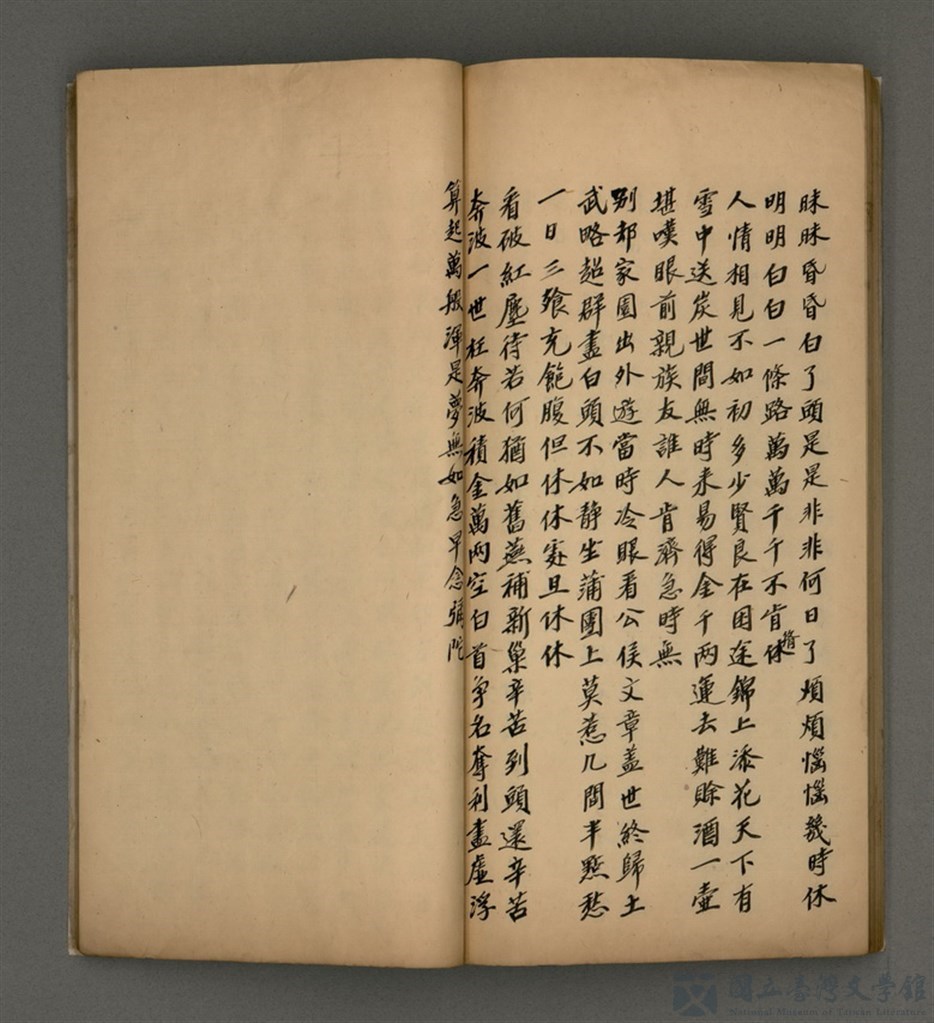 昧昧昏昏白了頭是是非非何日了煩煩惱惱幾時休
明明白白一條路萬萬千千不肯休
脩
人情相見不如初多少賢良在困途錦上添花天下有
雪中送炭世間無時来易得金千両運去難賒酒一壺
堪嘆眼前親族友誰人肯濟急時無
别却家園出外遊當時冷眼看公侯文章盖世終歸土
武略超群盡白頭不如静坐蒲團上莫惹凡間半點愁
一日三飡充飽腹但休休處且休休
看破紅塵待若何猶如舊燕補新巢辛苦到頭還辛苦
奔波一世枉奔波積金萬両空白首争名奪利盡虛浮
算起萬般渾是夢無如急早念彌陀
國立臺灣文學館
National Museum of Taiwan Literature